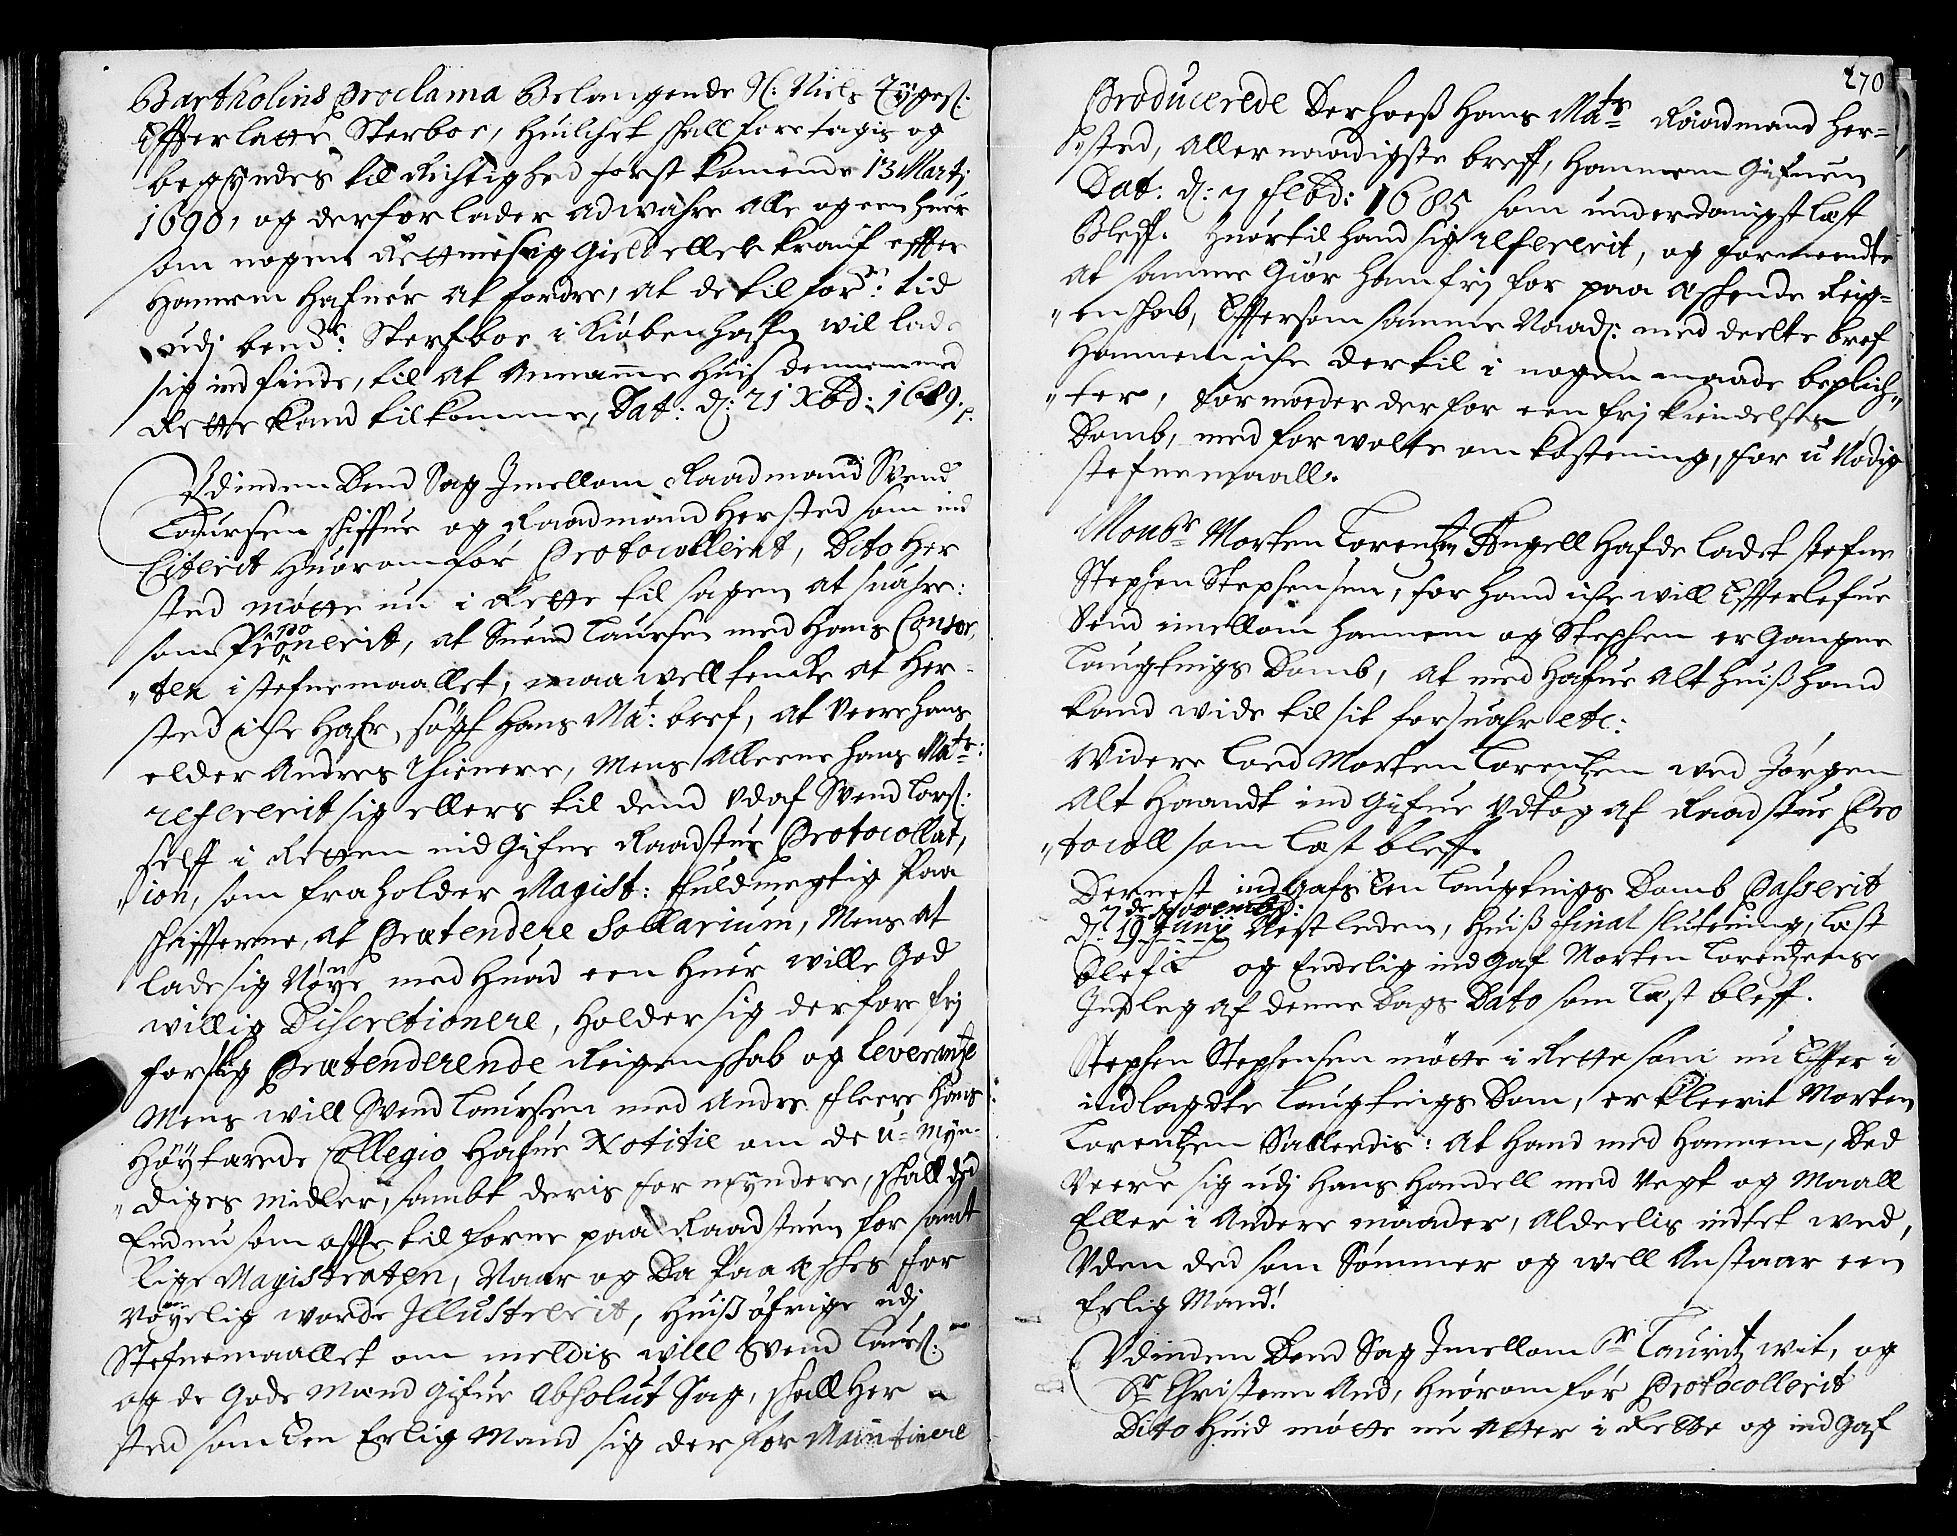 Bartholins Proclama Belangende H: Niels Tygeß:
Effterlatte Sterboe, huilchet shall foretagis og
begyndes til Richtighed först komende 13 Martj
1690, og derfor lader adwahre alle og een huer
som nogen Rettmesig Gield eller krauf effter
Hannem hafuer at fordre, at de til forn: tid
udj bend.te: Sterfboe i Kiöbenhaffn wil lade
sig indfinde, til at Annamme huis dennem med
Rette kand tilkomme, Dat: d: 21 Xbd: 1689.
Udinden Dend Sag Jmellom Raadmand Svend
Laursen skiffue og Raadmand Hersted som ind
Citerit Huorom för Protocollerit, Dito Her
sted mötte nu i Rette til sagen at suahre:
som Proponerit, at Suend Laursen med Hans Consor,
"ter i stefnemaallet, maa well tencke at Her-
sted iche hafr, sögt Hans Ma.t: bref, at veere hans
elder Andres thienere, Mens Alleene hans Ma.ts:
refererit sig ellers til dend udaf Svend Lars:
self i Retten ind Gifne Raadstue Protocollat,
"ion, som fraholder Magist: fuldmegtig Paa
shifferne, at Prætendere Sollarium, Mens at
lade sig Nöye med huad een huer wille God
willig Discretionere, holder sig derfore frj
for slig Prætenderende Reigenshab og leverantze
Mens will Svend Laursen med Andre fleere Hans
Höytærede Collegio hafue Notitie om de u-Myn-
"diges Midler, sambt deris formyndere, shall ded
Endnu som offte tilforne paa Raadstuen for samt
lige Magistraten, Naar og Da Paa æshes for
Nöyelig worde Jllustrerit, huiß öfrige udj
Stefnemaallet om meldis will Svend Laurß:
og de Gode Mænd Gifue Absolut Sag, shall Her
sted som Een Erlig Mand sig der for Maintinere
270
Producerede Derhoeß Hans Ma.ts Raadmand Her-
"sted, Allernaadigste breff, Hannem Gifuen
Dat: d: 7 Febd: 1685 som underdanigst læst
Bleff. Huortil hand sig refererit, og formeendte
at samme Giör ham frj for paa æshende Reig-
"enshab, Effersom samme Naad: meddeelte bref
Hannem iche dertil i nogen maade beplich"
"ter, formoeder derfor een frj kiendelses
Domb, med forwolte omkostening, for u Nödig
stefnemaall.
Mons.r Morten Lorentzen Angell Hafde ladet stefne
Stephen Stephensen, for hand iche will Effterlefue
Dend imellom hannem og Stephen er Gangne
Laugtings Domb, at med hafue Alt huiß hand
kand wide til sit forsuahr etc:
Widere loed Morten Lorentzen wed Jörgen
Alt Haandt ind Gifue Udtog af Raadstue Pro
"tocoll som læst bleff.
Dernest ind Gafs Een Laugtings Domb Passerit
7 de Novemb:
d: 19 Junij Nest leden, Huiß final slutning, læst
Blef og Endelig ind Gaf Morten Lorentzens
Indleg af denne Dags Dato som læst bleff.
Stephen Stephensen mötte i Rette som nu Effter i
indlagdte Laugtings Dom, erkleerit Morten
Lorentzen Sallendis: At Hand med Hannem, Ded
veere sig udj Hans Handell med Vegt og Maall
Eller i Andere maader, Alderlis indtet wed,
Uden ded som Sömmer og well Anstaar een
Erlig Mand!
Udinden Dend Sag Jmellom S.r Lauritz wit, og
S.r Christenn And, huorom för Protocollerit
Dito Huid mötte nu Atter i Rette og ind Gaf